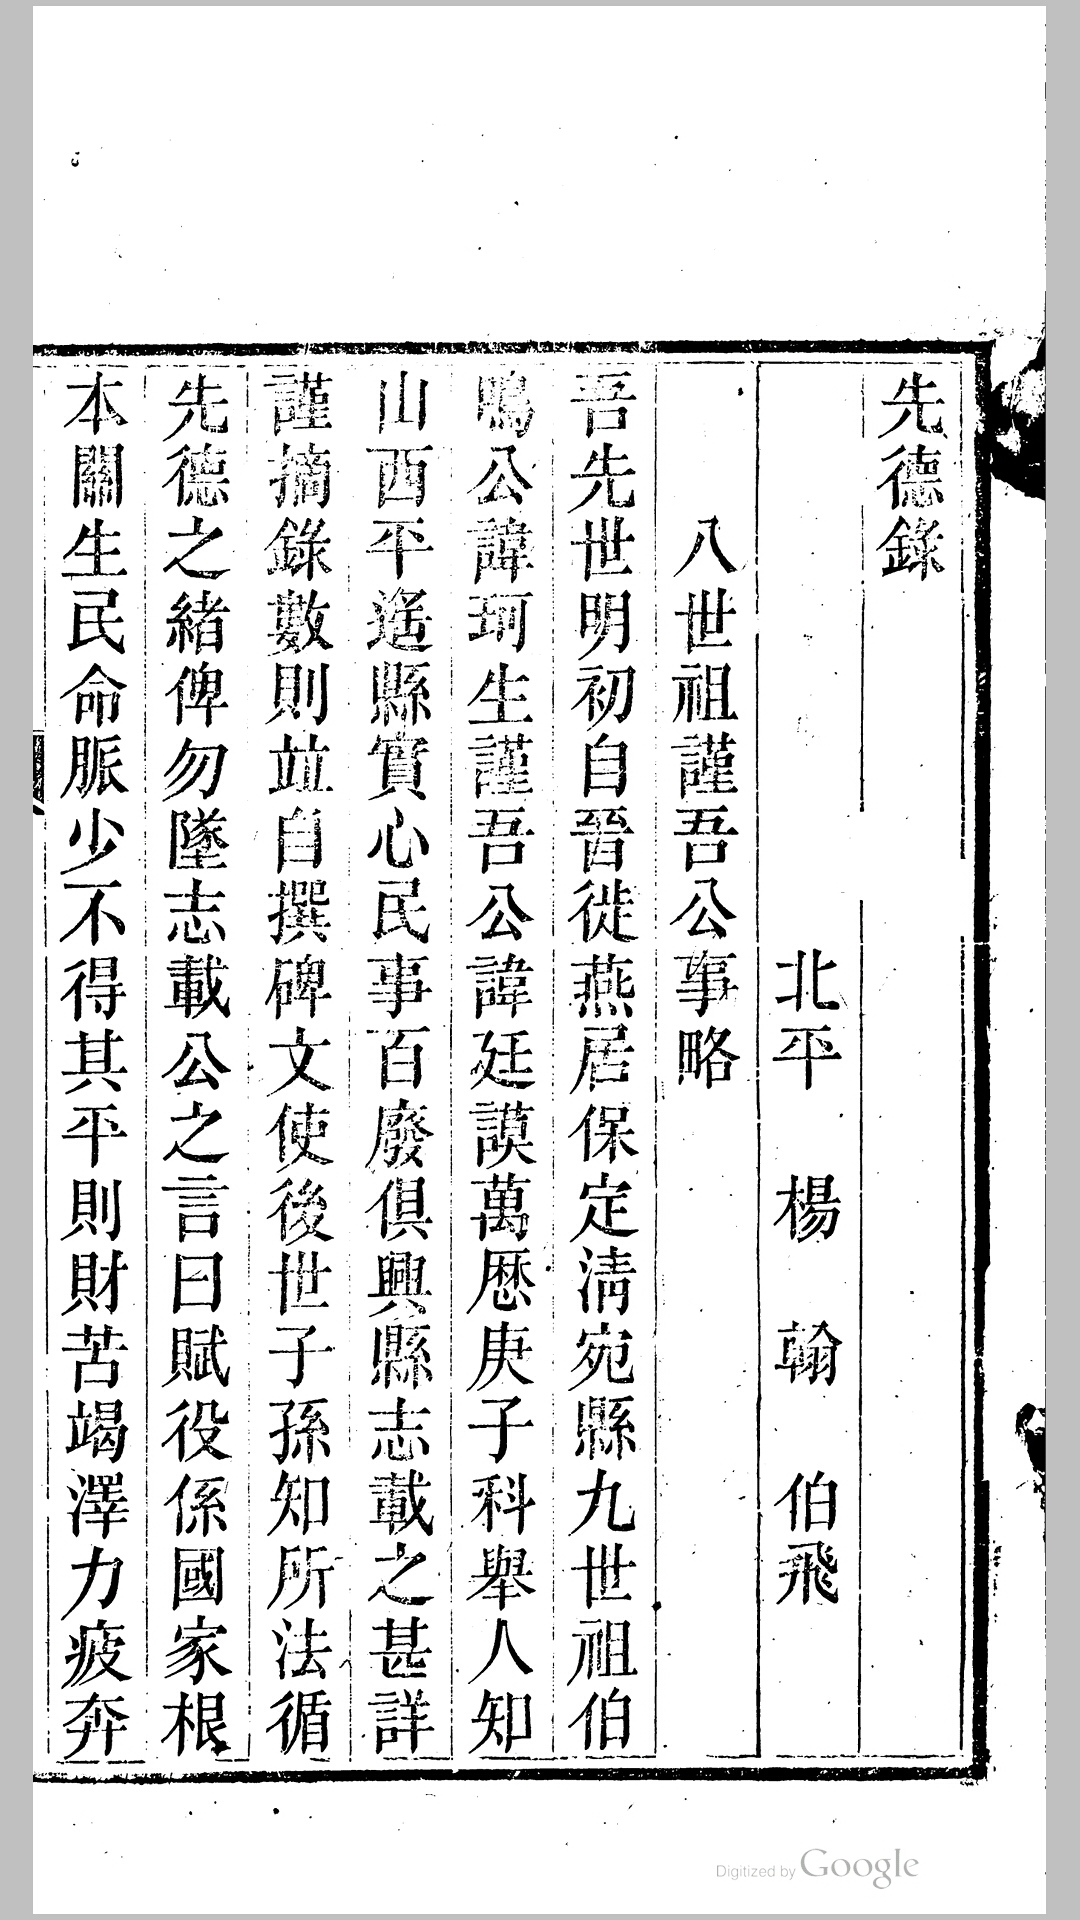 先德錄
北平 楊 翰 伯飛
八世祖謹吾公事略
吾先世明初自晉徙燕居保定淸宛縣九世祖伯
鳴公諱珂生謹吾公諱廷謨萬厯庚子科舉人知
山西平遥縣實心民事百廢俱興縣志載之甚詳
謹摘錄數則竝自撰碑文使後世子孫知所法循
先德之緒俾勿墜志載公之言曰賦役係國家根
本關生民命脈少不得其平則財苦竭澤力疲奔
Digitized by Google